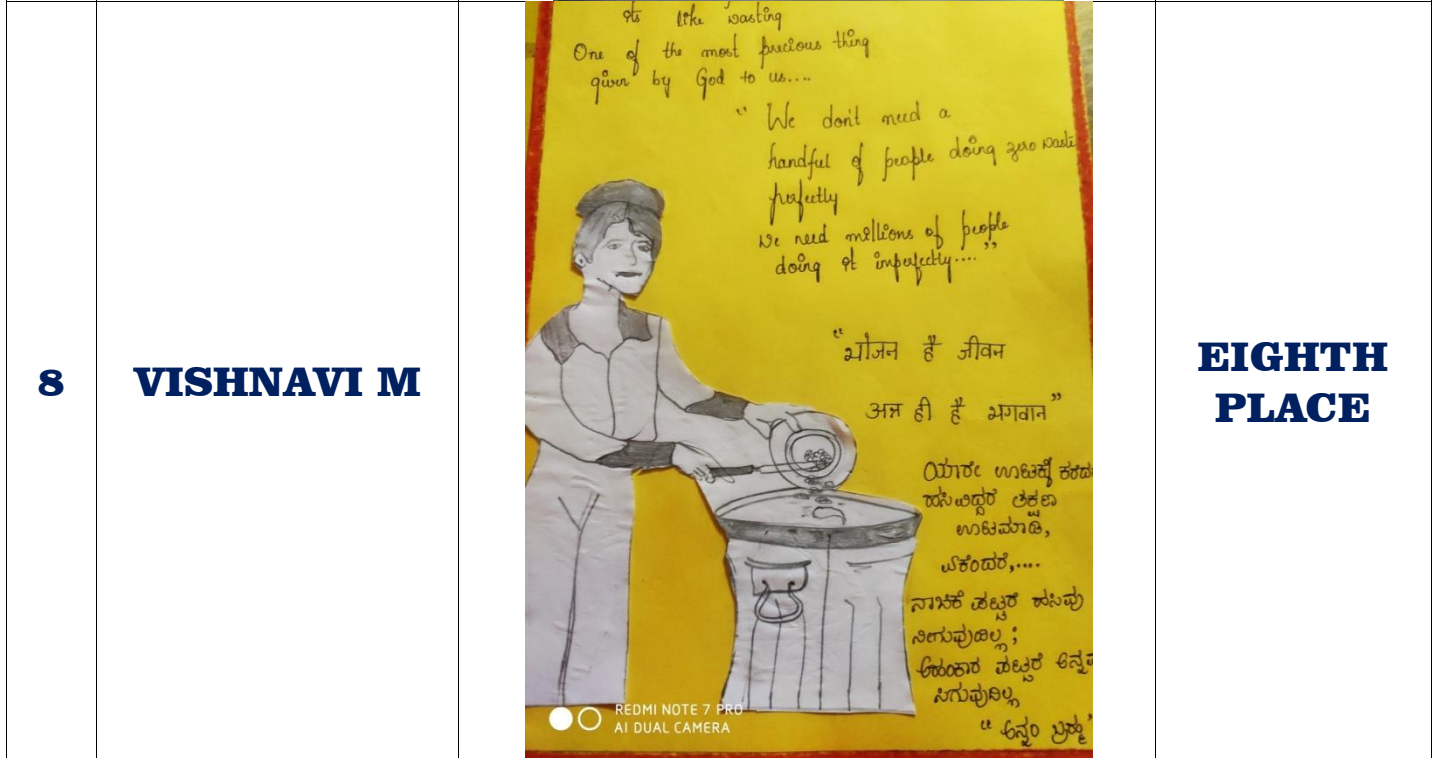 8
VISHNAVI M
its like wasting
One of the most precious thing
given by God to us....
" We don't need a
handful of people doing zero waste
perfectly
we need millions of people
doing it imperfectly...."
"भोजन है जीवन
अन्न ही है भगवान"
ಯಾರೇ ಊಟಕ್ಕೆ ಕರೆದ
ಹಸಿವಿದ್ದರೆ ತಕ್ಷಣ
ಊಟಮಾಡಿ,
ಏಕೆಂದರೆ,....
ನಾಚಿಕೆ ಪಟ್ಟರೆ ಹಸಿವು
ನೀಗುವುದಿಲ್ಲ;
ಅಹಂಕಾರ ಪಟ್ಟರೆ ಅನ್ನವ
ಸಿಗುವುದಿಲ್ಲ
" ಅನ್ನಂ ಬ್ರಹ್ಮ"
REDMI NOTE 7 PRO
AI DUAL CAMERA
EIGHTH
PLACE